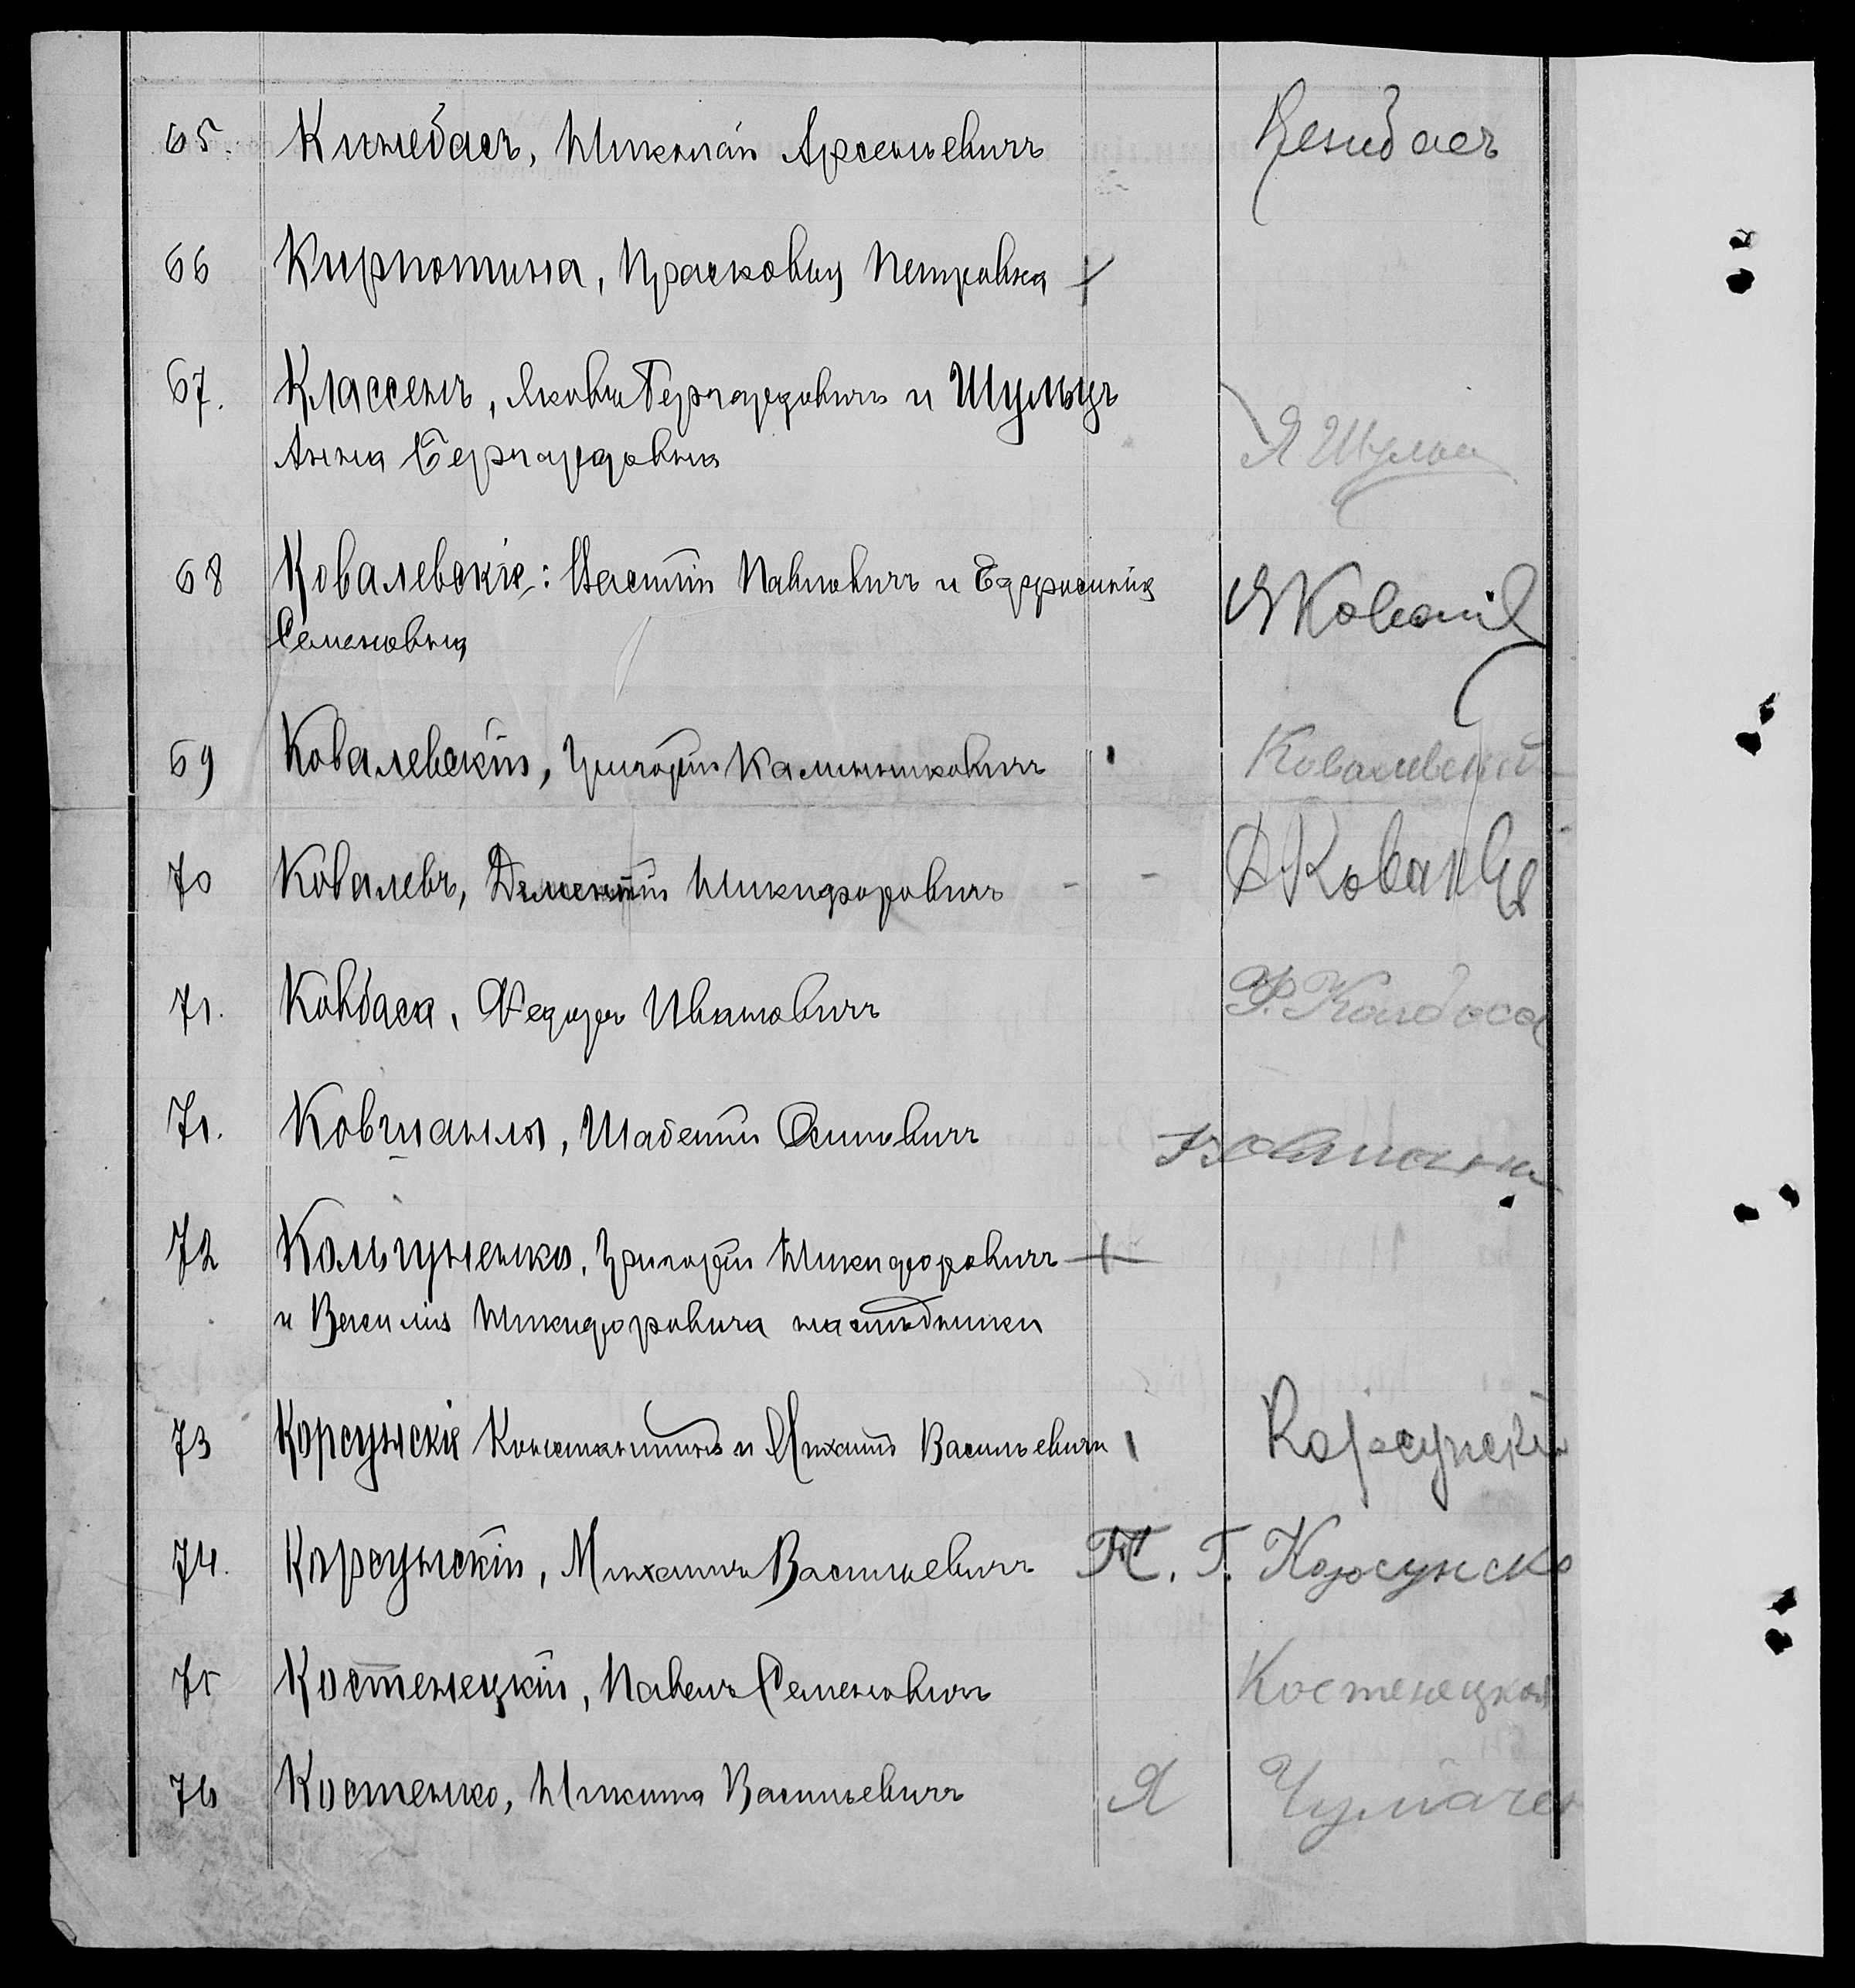 65. Кинебасъ, Николай Арсеньевичъ
66 Кирпотина, Прасковья Петровна +
67. Классенъ, Яковъ Бернгардовичъ и Шульцъ
Анна Бернгардовна
Я Шульц
68 Ковалевскіе: Павловичъ и Ефросинія
Семеновна
69 Ковалевскій, Григорій Калинниковичъ Ковалевский
70 Ковалевъ, Дементій Никифоровичъ - -
71. Ковбаса, Федоръ Ивановичъ Ф. Ковбаса
71. Ковшанля, Осиповичъ
72 Григорій Никифоровичъ +
и Василія Никифоровича наслѣдники
73 Корсунскіе Константинъ и Михаилъ Васильевичи Корсунскій
74. Корсунскій, Михаилъ Васильевичъ Г. Корсунско
75 Костенецкій, Павелъ Семеновичъ Костенецкая
76 Костенко, Никита Васильевичъ Я Чумачен